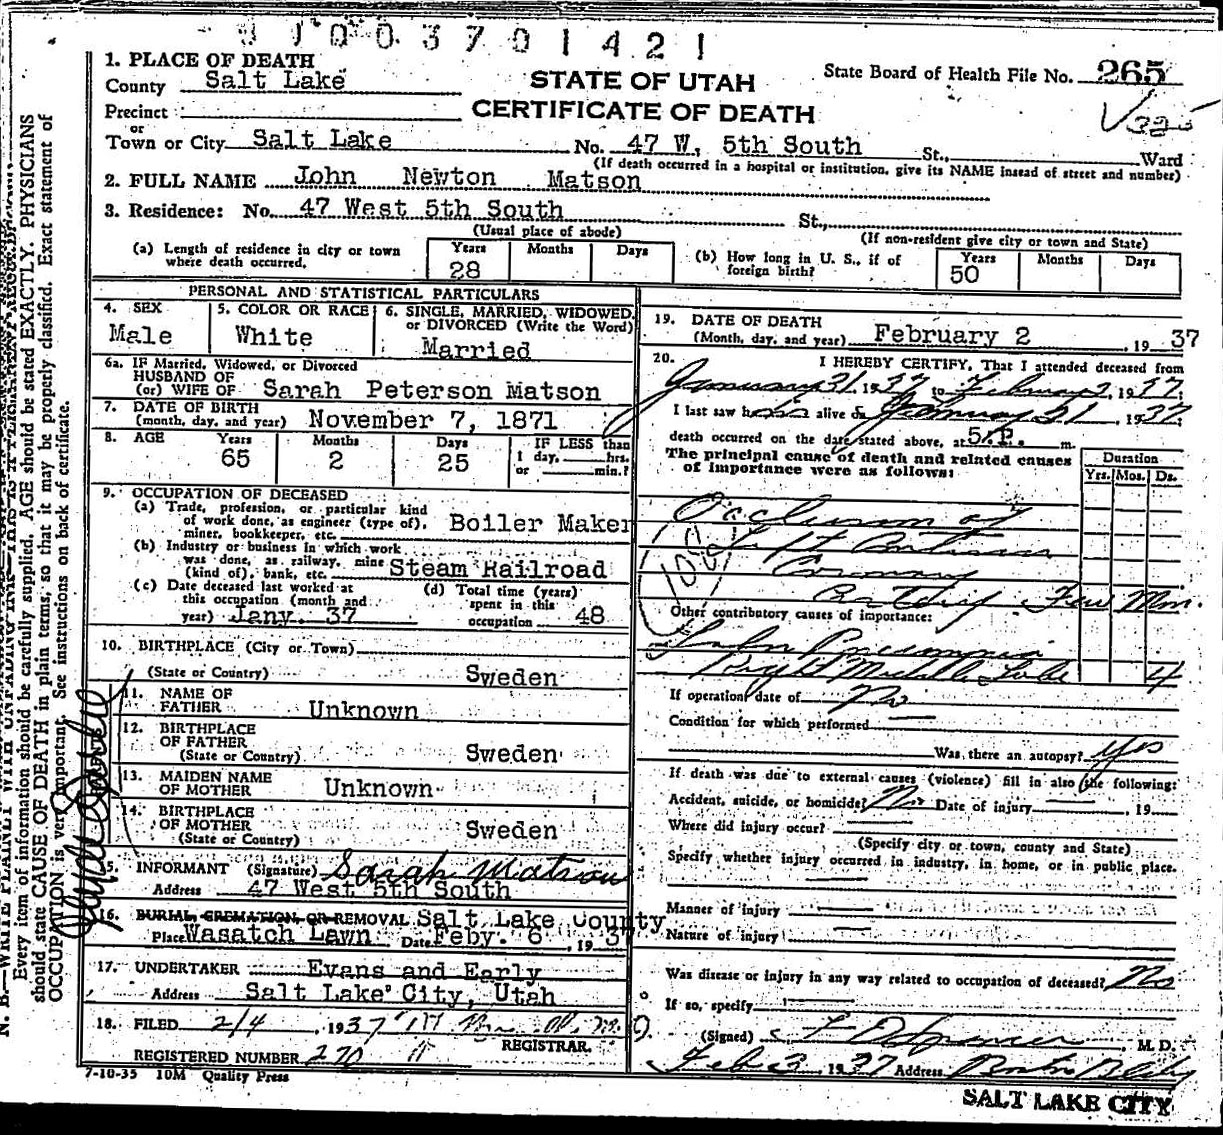 1003701421
1. PLACE OF DEATH
County Salt Lake
STATE OF UTAH
State Board of Health File No. 265
Precinct
CERTIFICATE OF DEATH
or
Town or City Salt Lake No. 47 W. 5th South St., Ward
(If death occurred in a hospital or institution, give its NAME instead of street and number)
2. FULL NAME John Newton Matson
3. Residence: No. 47 West 5th South St.,
(Usual place of abode) (If non-resident give city or town and State)
(a) Length of residence in city or town where death occurred. Years 28 Months Days
(b) How long in U. S., if of foreign birth? Years 50 Months Days
PERSONAL AND STATISTICAL PARTICULARS
4. SEX Male
5. COLOR OR RACE White
6. SINGLE, MARRIED, WIDOWED, or DIVORCED (Write the Word) Married
6a. IF Married, Widowed, or Divorced
HUSBAND OF
(or) WIFE OF Sarah Peterson Matson
7. DATE OF BIRTH
(month, day, and year) November 7, 1871
8. AGE Years 65 Months 2 Days 25 IF LESS than 1 day, hrs. or min.?
9. OCCUPATION OF DECEASED
(a) Trade, profession, or particular kind
of work done, as engineer (type of),
miner, bookkeeper, etc. Boiler Maker
(b) Industry or business in which work
was done, as railway, mine
(kind of), bank, etc. Steam Railroad
(c) Date deceased last worked at
this occupation (month and
year) Jany. 37
(d) Total time (years)
spent in this
occupation 48
10. BIRTHPLACE (City or Town)
(State or Country) Sweden
11. NAME OF
FATHER Unknown
12. BIRTHPLACE
OF FATHER
(State or Country) Sweden
13. MAIDEN NAME
OF MOTHER Unknown
14. BIRTHPLACE
OF MOTHER
(State or Country) Sweden
15. INFORMANT (Signature) Sarah Matson
Address 47 West 5th South
16. BURIAL, CREMATION, OR REMOVAL Salt Lake County
Place Wasatch Lawn Date Feby. 6, 1937
17. UNDERTAKER Evans and Early
Address Salt Lake City, Utah
18. FILED 2/4, 1937
REGISTRAR.
REGISTERED NUMBER 270
7-10-35 10M Quality Press
19. DATE OF DEATH
(Month, day, and year) February 2, 1937
20. I HEREBY CERTIFY, That I attended deceased from
January 31, 1937 to February 2, 1937
I last saw him alive on January 31, 1937
death occurred on the date stated above, at 5 P. m.
The principal cause of death and related causes
of importance were as follows:
Duration
Yrs. Mos. Ds.
Occlusion of
Left Anterior
Coronary
Artery Few Min.
Other contributory causes of importance:
Lobar Pneumonia
Right Middle Lobe 4
If operation, date of No
Condition for which performed
Was there an autopsy? Yes
If death was due to external causes (violence) fill in also the following:
Accident, suicide, or homicide? No Date of injury , 19
Where did injury occur?
(Specify city or town, county and State)
Specify whether injury occurred in industry, in home, or in public place.
Manner of injury
Nature of injury
Was disease or injury in any way related to occupation of deceased? No
If so, specify
(Signed) Spencer M. D.
Feb 3 1937 Address Boston Bldg
SALT LAKE CITY
Every item of information should be carefully supplied. AGE should be stated EXACTLY. PHYSICIANS
should state CAUSE OF DEATH in plain terms, so that it may be properly classified. Exact statement of
OCCUPATION is very important. See instructions on back of certificate.